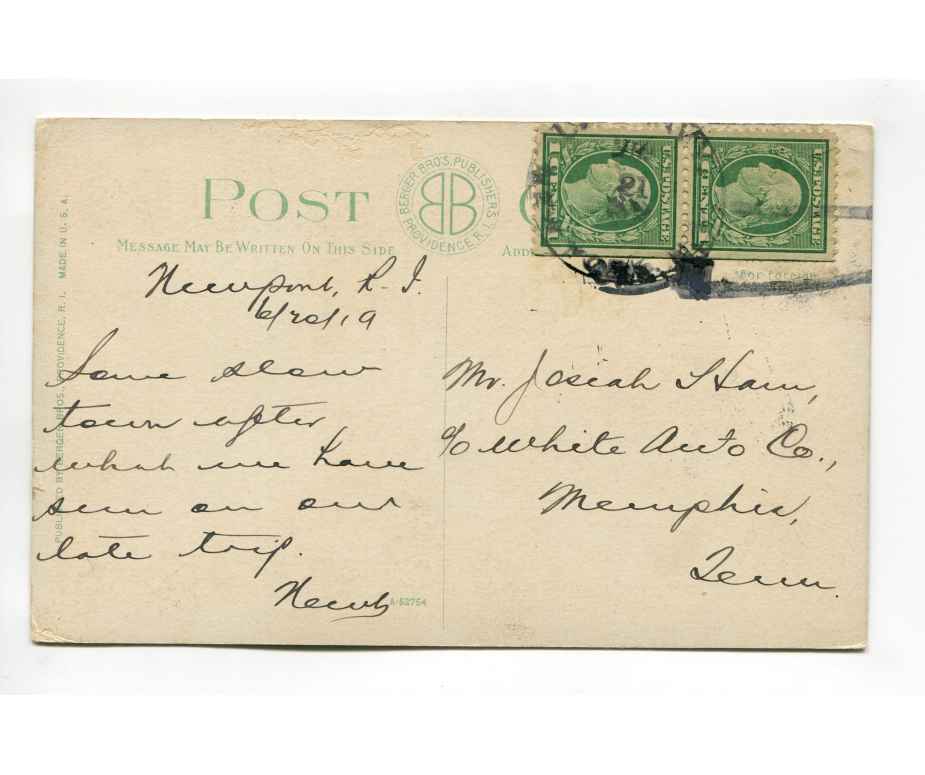 POST
BERGER BRO'S. PUBLISHERS
PROVIDENCE, R. I.
MESSAGE MAY BE WRITTEN ON THIS SIDE
PUBLISHED BY BERGER BROS., PROVIDENCE, R. I. MADE IN U. S. A.
Newport, R. I.
6/20/19
Some slow
town after
what we have
seen on our
late trip.
Newt
A-52754
U.S. POSTAGE
1 CENT 1
U.S. POSTAGE
1 CENT 1
21
For Foreign
Mr. Josiah Ham,
c/o White Auto Co.,
Memphis,
Tenn.